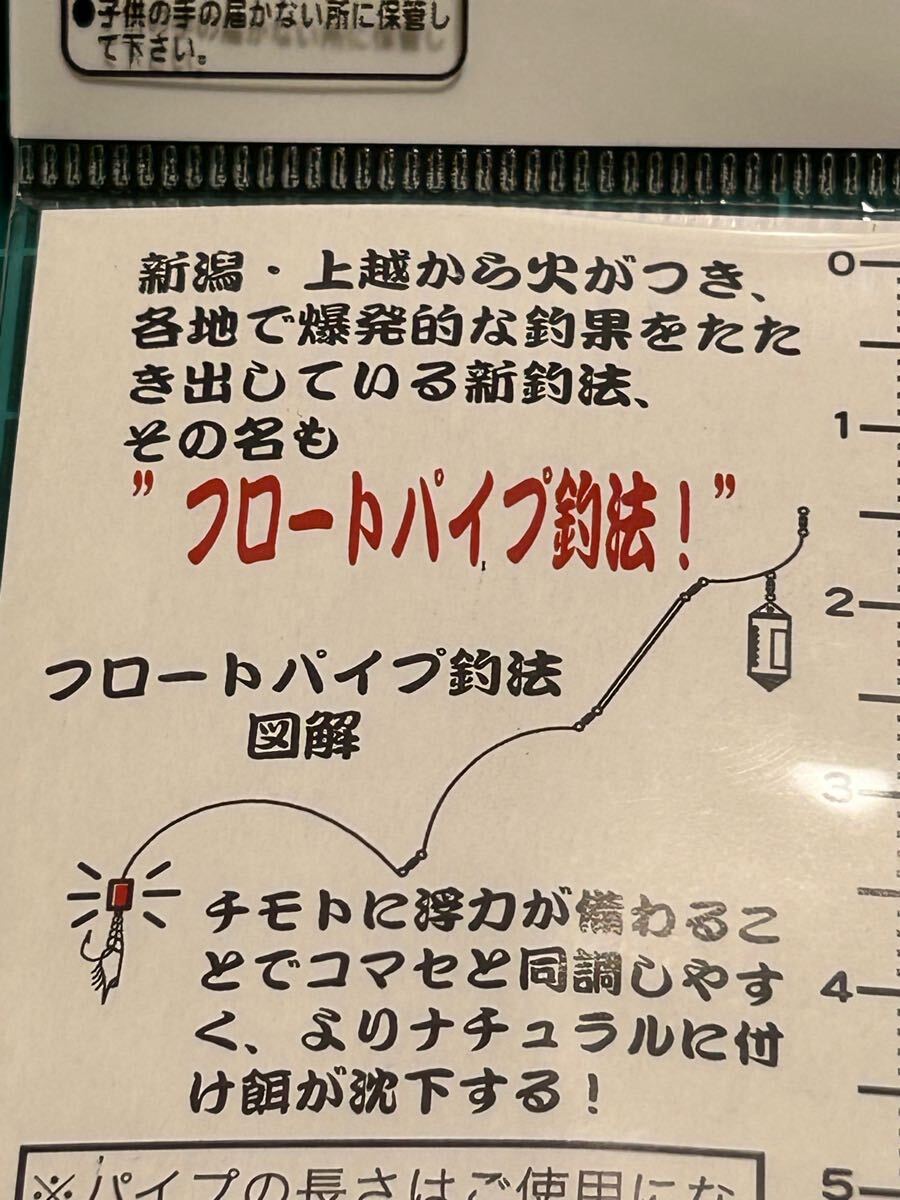 ●子供の手の届かない所に保管し
て下さい。
新潟・上越から火がつき、
各地で爆発的な釣果をたた
き出している新釣法、
その名も
”フロートパイプ釣法！”
フロートパイプ釣法
図解
チモトに浮力が備わるこ
とでコマセと同調しやす
く、よりナチュラルに付
け餌が沈下する！
※パイプの長さはご使用にな
0
1
2
3
4
5